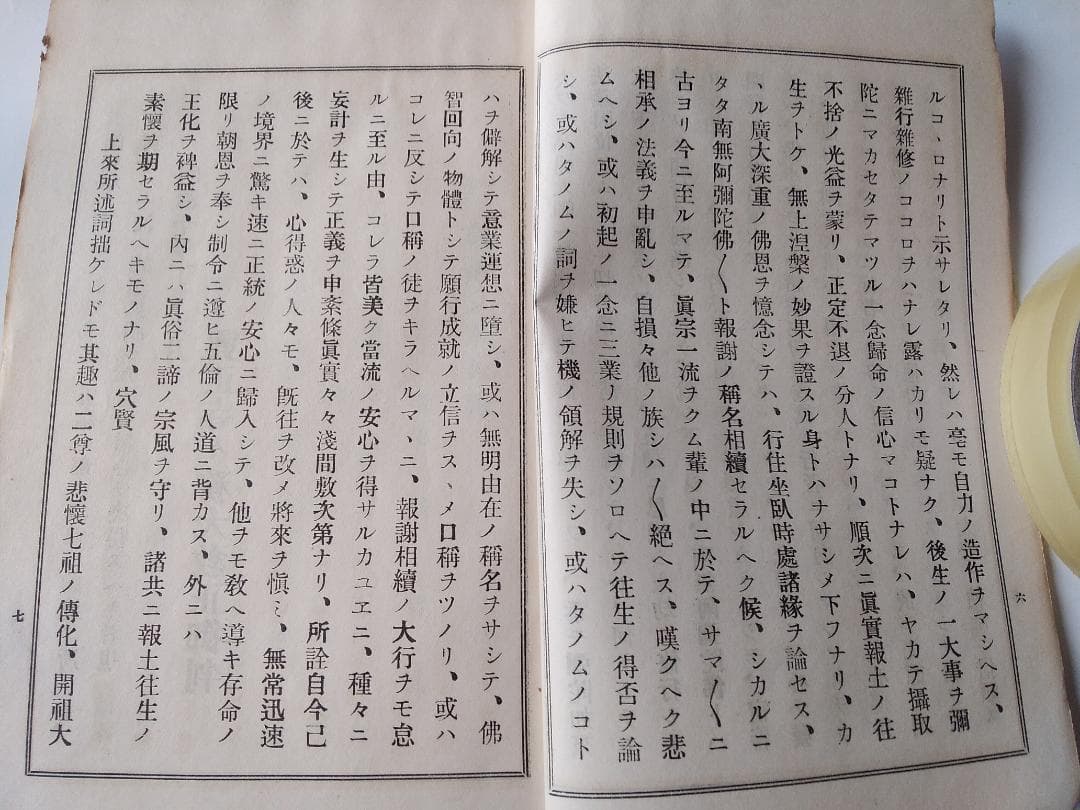 ルコヽロナリト示サレタリ、然レハ亳モ自力ノ造作ヲマシヘス、
雜行雜修ノココロヲハナレ露ハカリモ疑ナク、後生ノ一大事ヲ彌
陀ニマカセタテマツル一念歸命ノ信心マコトナレハ、ヤカテ攝取
不捨ノ光益ヲ蒙リ、正定不退ノ分人トナリ、順次ニ眞實報土ノ往
生ヲトケ、無上涅槃ノ妙果ヲ證スル身トハナサシメ下フナリ、カ
ヽル廣大深重ノ佛恩ヲ憶念シテハ、行住坐臥時處諸緣ヲ論セス、
タタ南無阿彌陀佛〱ト報謝ノ稱名相續セラルヘク候、シカルニ
古ヨリ今ニ至ルマテ、眞宗一流ヲクム輩ノ中ニ於テ、サマ〱ニ
相承ノ法義ヲ申亂シ、自損々他ノ族シハ〱絕ヘス、嘆クヘク悲
ムヘシ、或ハ初起ノ一念ニ三業ノ規則ヲソロヘテ往生ノ得否ヲ論
シ、或ハタノムノ詞ヲ嫌ヒテ機ノ領解ヲ失シ、或ハタノムノコト
六
ハヲ僻解シテ意業運想ニ墮シ、或ハ無明由在ノ稱名ヲサシテ、佛
智回向ノ物體トシテ願行成就ノ立信ヲスヽメ口稱ヲツノリ、或ハ
コレニ反シテ口稱ノ徒ヲキラヘルマヽニ、報謝相續ノ大行ヲモ怠
ルニ至ル由、コレラ皆美ク當流ノ安心ヲ得サルカユヱニ、種々ニ
妄計ヲ生シテ正義ヲ申紊條眞實々々淺間敷次第ナリ、所詮自今已
後ニ於テハ、心得惑ノ人々モ、旣往ヲ改メ將來ヲ愼ミ、無常迅速
ノ境界ニ驚キ速ニ正統ノ安心ニ歸入シテ、他ヲモ敎ヘ導キ存命ノ
限リ朝恩ヲ奉シ制令ニ遵ヒ五倫ノ人道ニ背カス、外ニハ
王化ヲ裨益シ、内ニハ眞俗二諦ノ宗風ヲ守リ、諸共ニ報土往生ノ
素懷ヲ期セラルヘキモノナリ、穴賢
上來所述詞拙ケレドモ其趣ハ二尊ノ悲懷七祖ノ傳化、開祖大
七